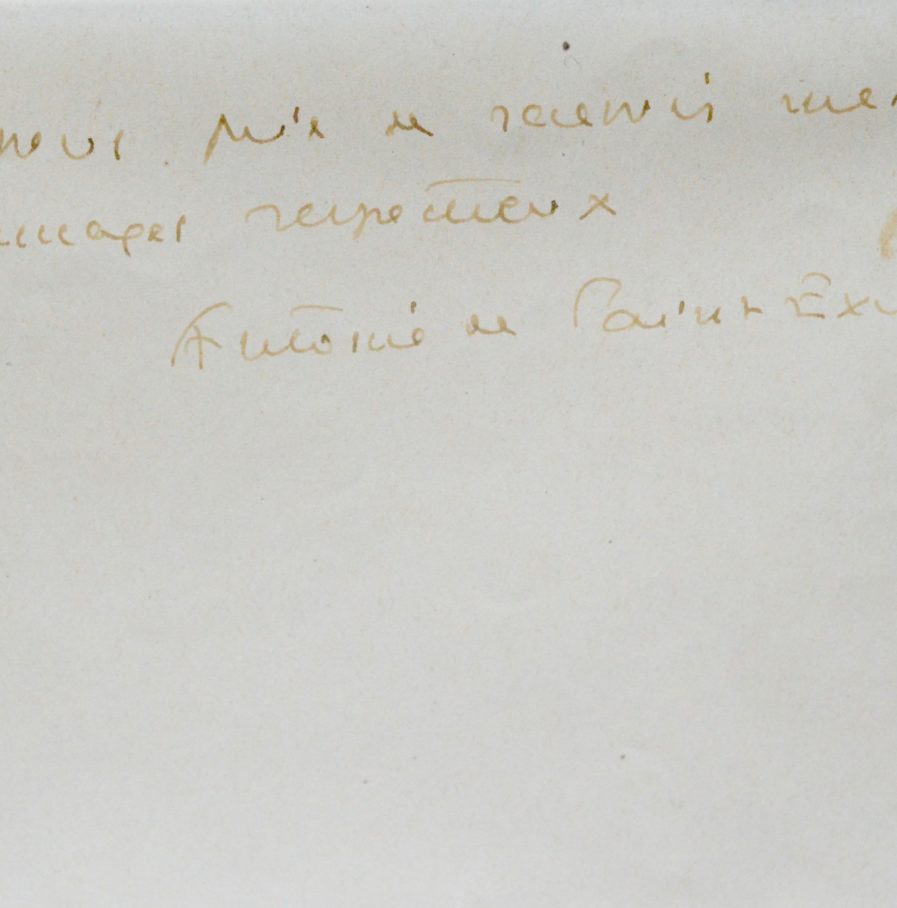 vous prie de recevoir mes
mmages respectueux
Antoine de Saint Exu